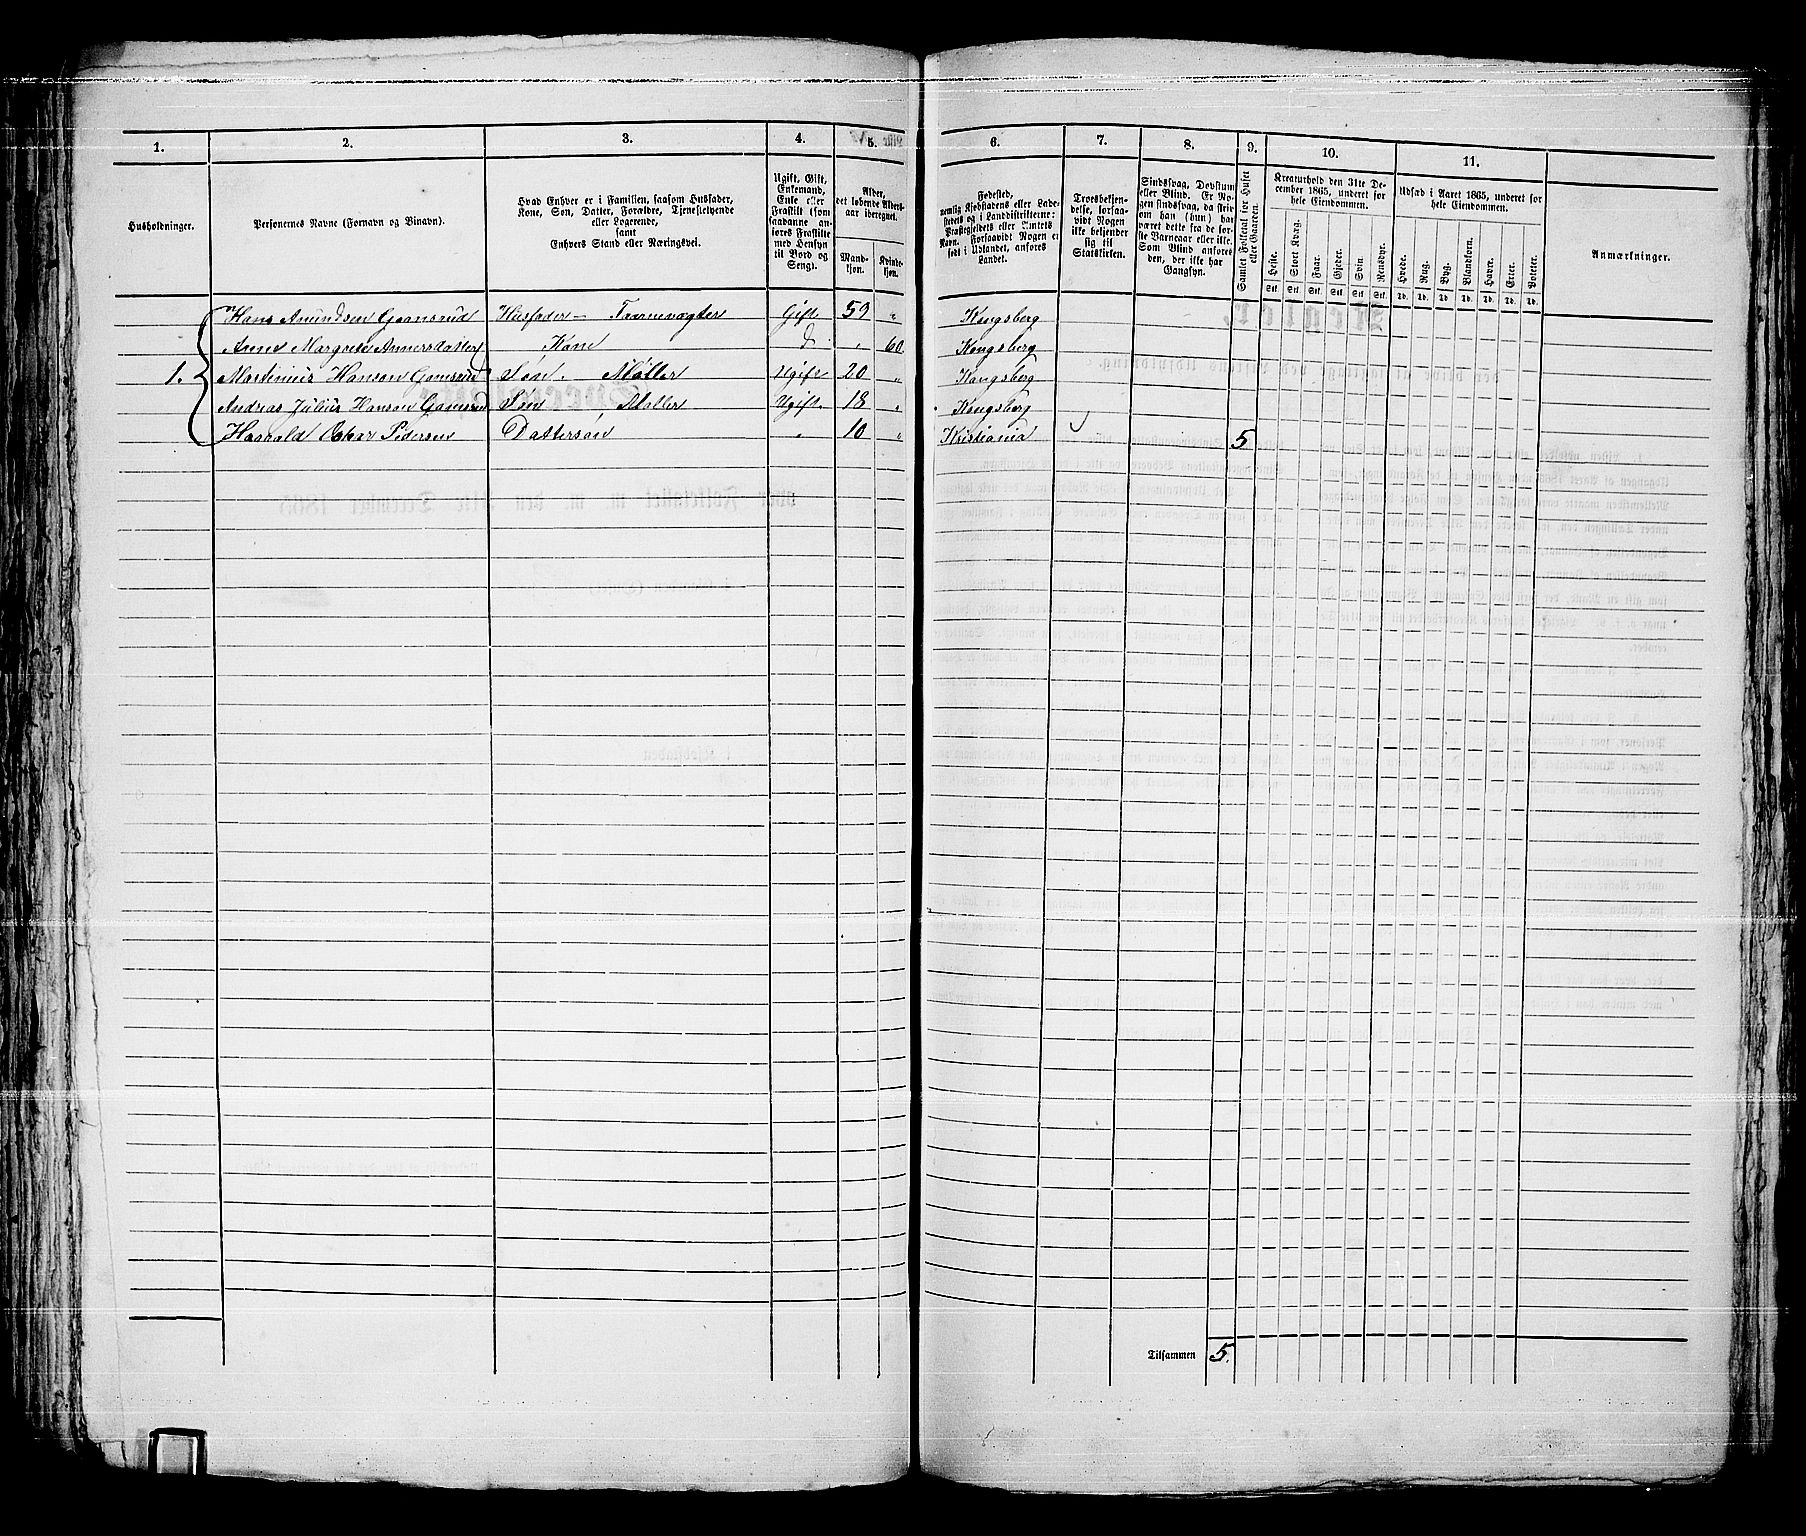 1. 2. 3. 4. 5. 6. 7. 8. 9. 10. 11.
Husholdninger.
Personernes Navne (Fornavn og Binavn).
Hvad Enhver er i Familien, saasom Husfader,
Kone, Søn, Datter, Forældre, Tjenestetyende
eller Logerende,
samt
Enhvers Stand eller Næringsvei.
Ugift, Gift,
Enkemand,
Enke eller
Fraskilt (som
saadanne an-
føres Fraskilte
med Hensyn
til Bord og
Seng).
Alder,
det løbende Alders-
aar iberegnet.
Mand-
kjøn.
Kvinde-
kjøn.
Fødested,
nemlig Kjøbstadens eller Lade-
stedets og i Landdistrikterne:
Præstegjeldets eller Sognets
Navn. Forsaavidt Nogen er
født i Udlandet, anføres
Landet.
Troesbekjen-
delse, forsaa-
vidt Nogen
ikke bekjender
sig til
Statskirken.
Sindssvag, Døvstum
eller Blind. Er No-
gen sindssvag, da skriv
om han (hun) har
været dette fra de før-
ste Barneaar eller ikke.
Som Blind anføres
den, der ikke har
Gangsyn.
Samlet Folketal for Huset
eller Gaarden.
Kreaturhold den 31te De-
cember 1865, underet for
hele Eiendommen.
Heste. Stort Kvæg. Faar. Gjeder. Svin. Rensdyr.
Stk. Stk. Stk. Stk. Stk. Stk.
Udsæd i Aaret 1865, underet for
hele Eiendommen.
Hvede. Rug. Byg. Blandkorn. Havre. Erter. Poteter.
Td. Td. Td. Td. Td. Td. Td.
Anmærkninger.
Hans Amundsen Gamsrud Husfader – Taarnevægter Gift 59 " Kongsberg
Anne Margrete Annersdatter Kone d. " 60 Kongsberg
1. Martinius Hansen Gamsrud Søn. Møller Ugift 20 " Kongsberg
Andreas Julius Hansen Gamsrud Søn Møller Ugift 18 " Kongsberg
Haarald Oskar Pedersen Dattersøn " 10 " Kristiania 5
Tilsammen 5.